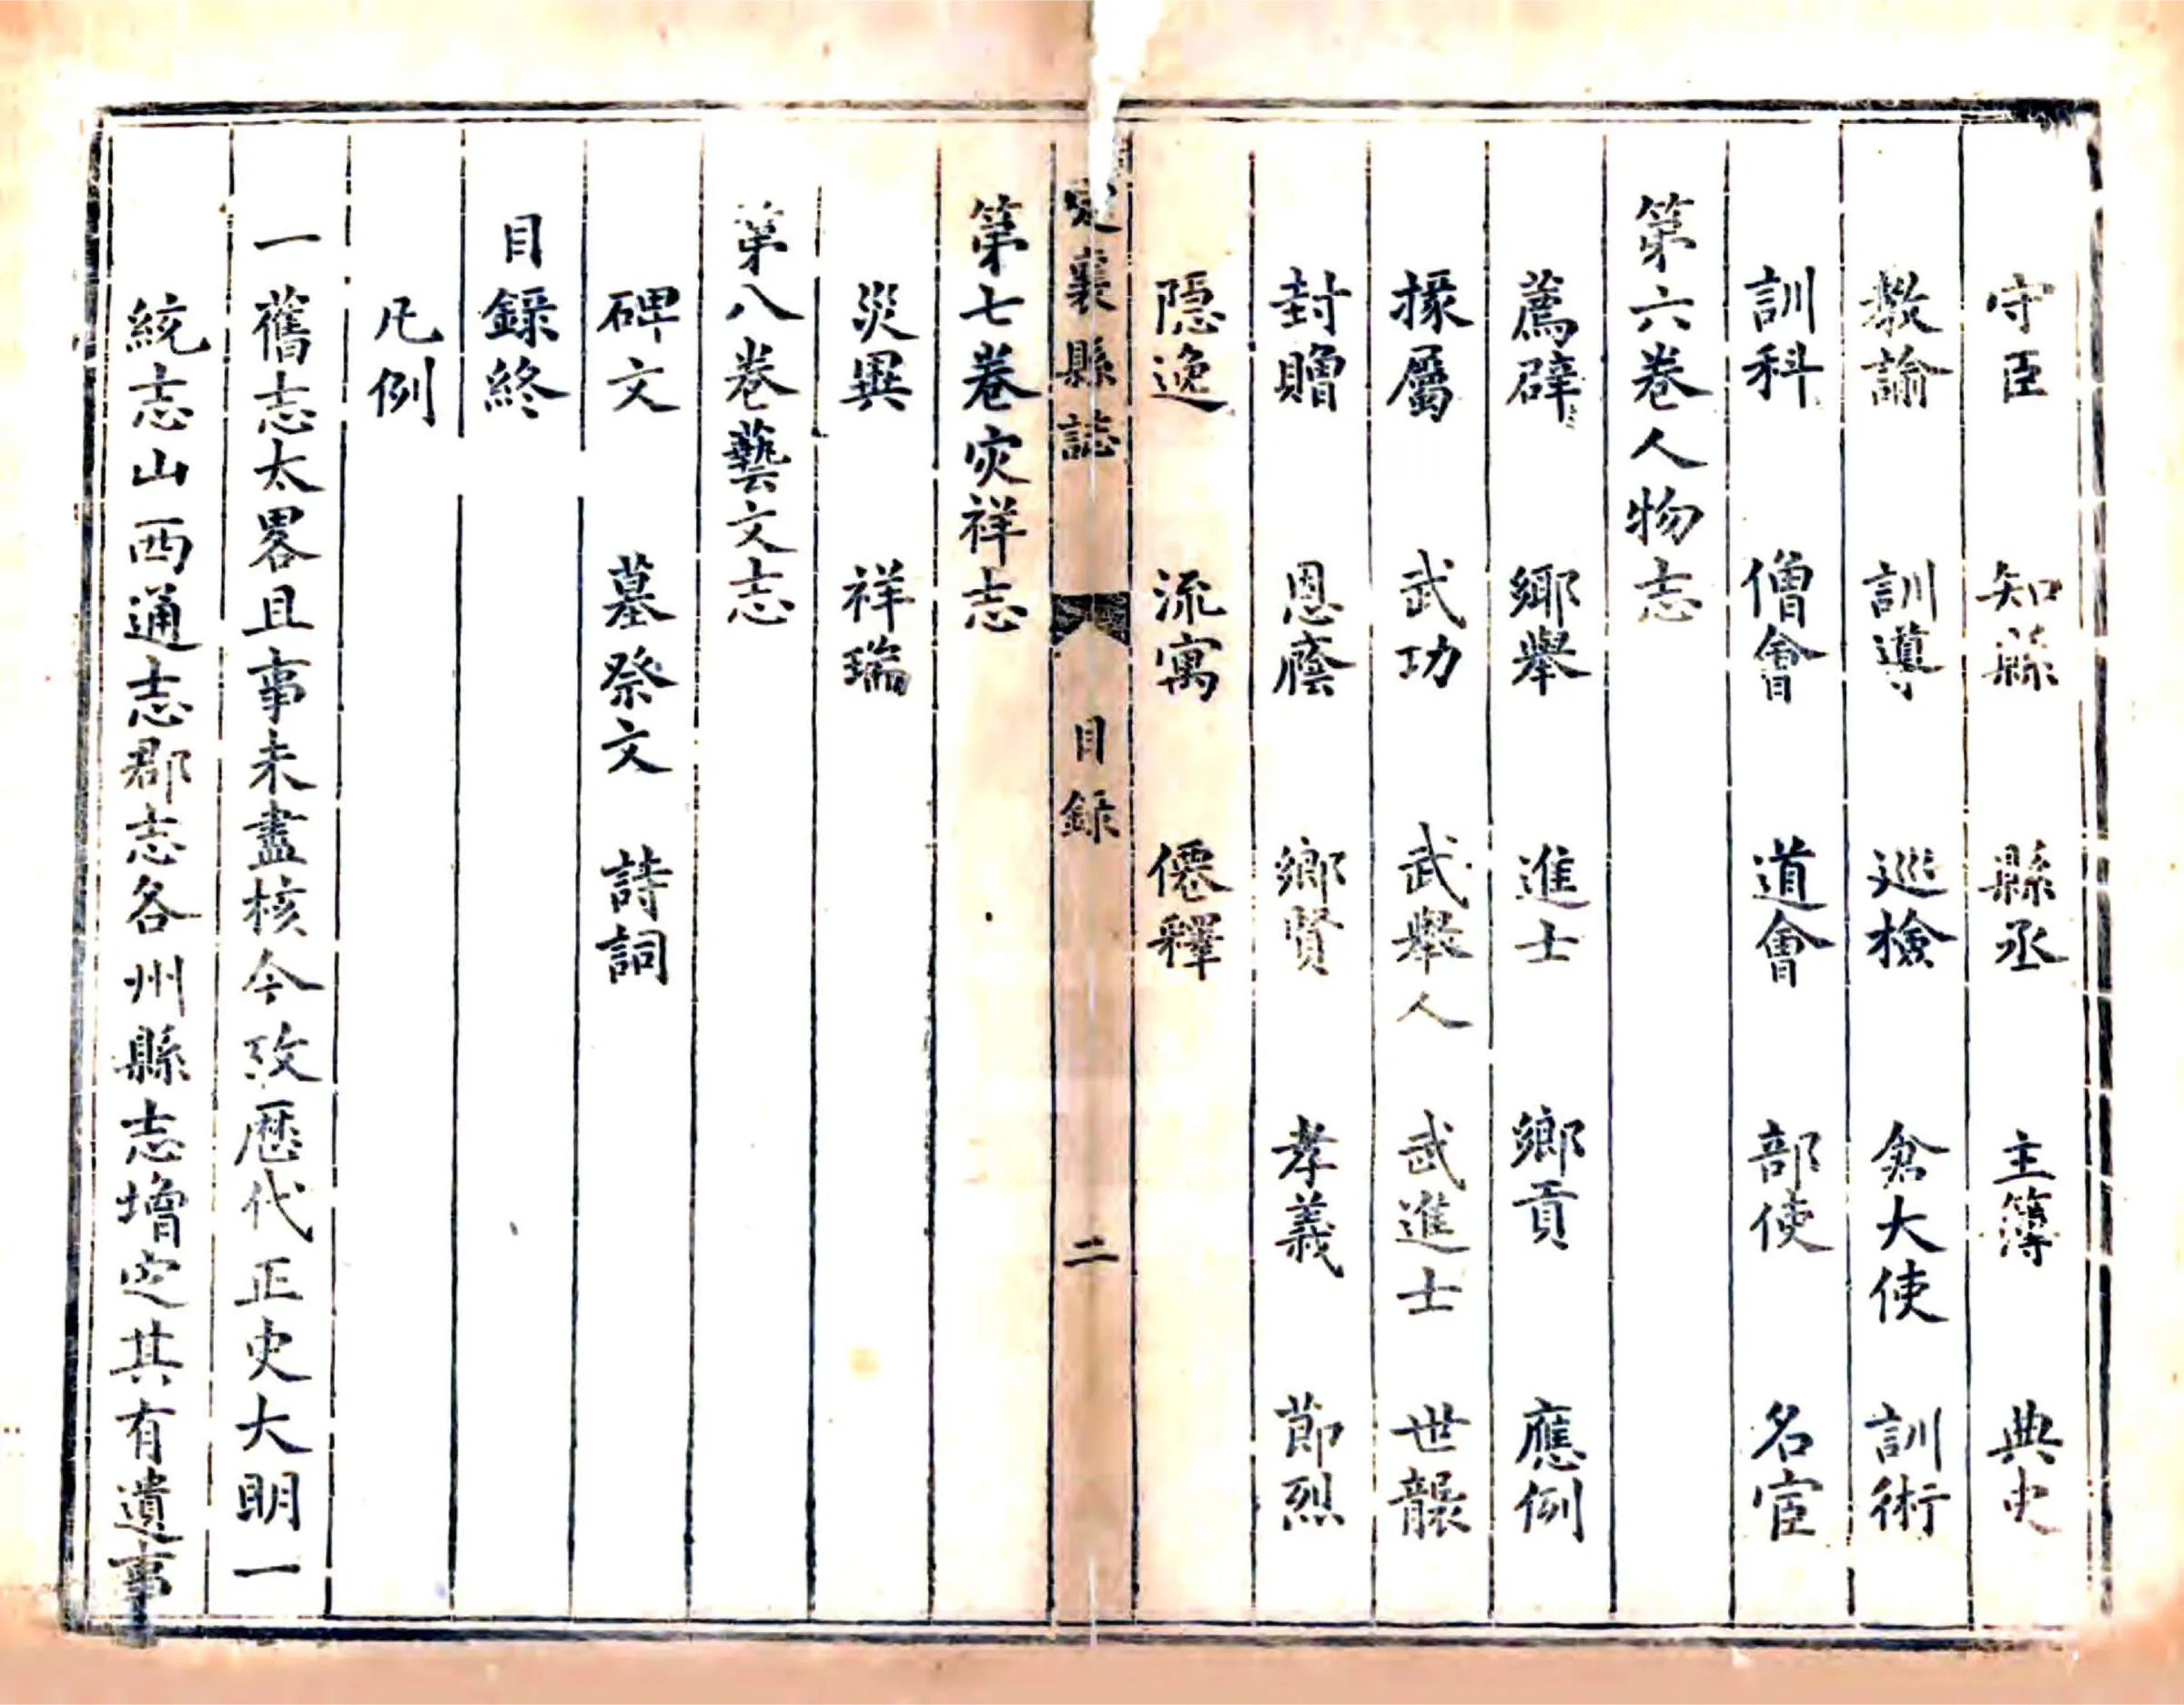 守臣 知縣 縣丞 主簿 典史
教諭 訓導 巡檢 倉大使 訓術
訓科 僧會 道會 部使 名宦
第六卷人物志
薦辟 鄉舉 進士 鄉貢 應例
掾屬 武功 武舉人 武進士 世襲
封贈 恩廕 鄉賢 孝義 節烈
隱逸 流寓 僊釋
定襄縣誌 目録 二
第七卷灾祥志
災異 祥瑞
第八卷藝文志
碑文 墓祭文 詩詞
目録終
凡例
一舊志太畧且事未盡核今攷歷代正史大明一
統志山西通志郡志各州縣志增定其有遺事